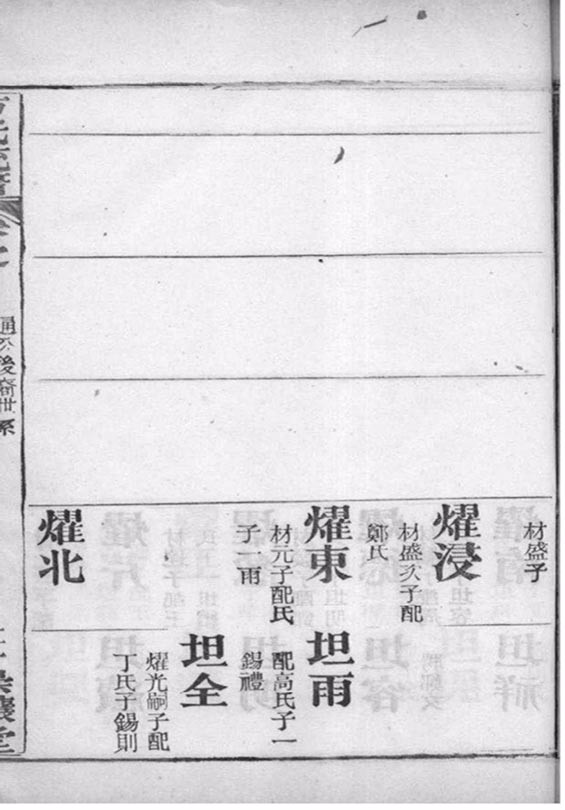 材盛子
燿浸
材盛次子配
鄭氏
燿東
材元子配氏
子一雨
燿北
坦雨
配高氏子一
錫禮
坦全
燿光嗣子配
丁氏子錫則
後裔世系